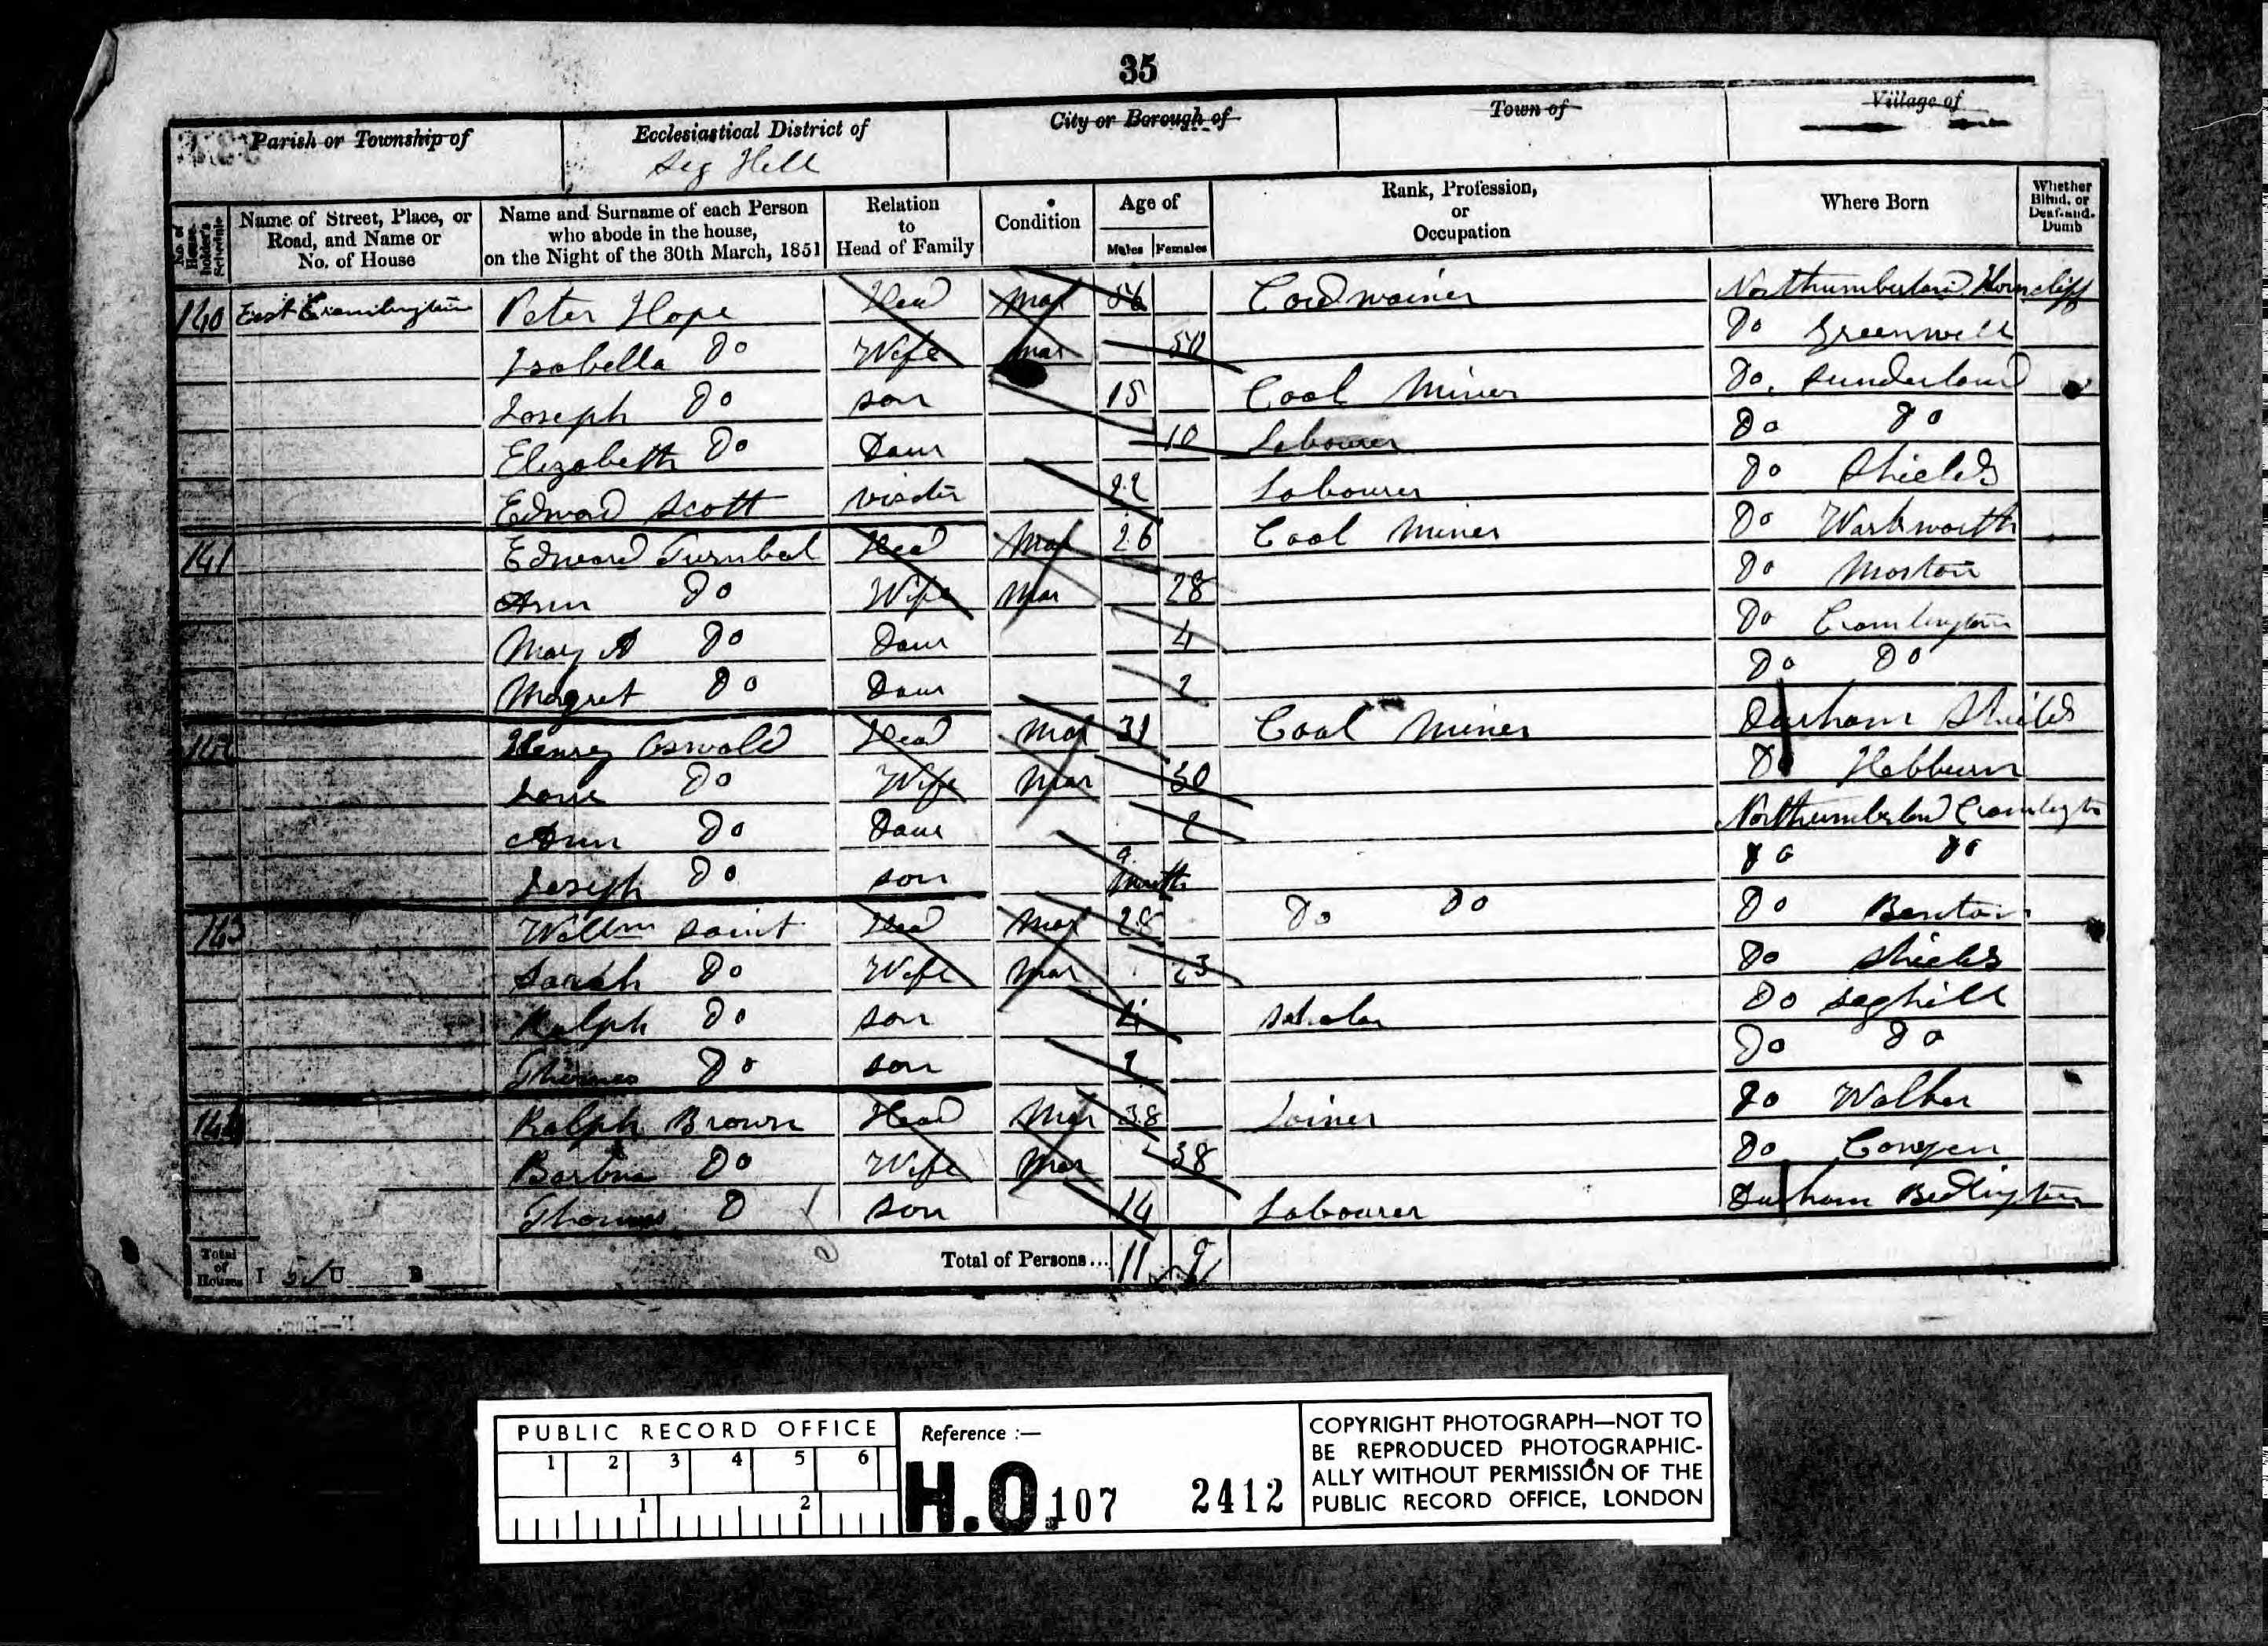 35
Parish or Township of | Ecclesiastical District of | City or Borough of | Town of | Village of
Seg Hill
No. of House-holder's Schedule | Name of Street, Place, or Road, and Name or No. of House | Name and Surname of each Person who abode in the house, on the Night of the 30th March, 1851 | Relation to Head of Family | Condition | Age of Males Females | Rank, Profession, or Occupation | Where Born | Whether Blind, or Deaf-and-Dumb
140 East Cramlington Peter Hope Head Mar 56 Cordwainer Northumberland Horncliff
Isabella Do Wife Mar Do Greenwell
Joseph Do son 15 Coal Miner Do Sunderland
Elizabeth Do Daur 10 Labourer Do Do
Edward Scott visitor 22 Labourer Do Shields
141 Edward Turnbul Head Mar 26 Coal Miner Do Warkworth
Ann Do Wife Mar 28 Do Morton
Mary A Do Daur 4 Do Cramlington
Magret Do Daur 2 Do Do
142 Henry Oswald Head Mar 31 Coal Miner Durham Shields
Jane Do Wife Mar 30 Do Hebburn
Ann Do Daur 2 Northumberland Cramlington
Joseph Do son 9 Month Do Do
143 Willm Saint Head Mar 28 Do Do Do Benton
Sarah Do Wife Mar 23 Do Shields
Ralph Do son 4 scholar Do Seghill
Thomas Do son Do Do
144 Ralph Brown Head Mar 38 Joiner Do Walker
Barbra Do Wife Mar 38 Do Cowpen
Thomas D son 14 Labourer Durham Bedlington
Total of Houses I 5 U B Total of Persons... 11 9
PUBLIC RECORD OFFICE
1 2 3 4 5 6
1 2
Reference :—
H.O. 107 2412
COPYRIGHT PHOTOGRAPH—NOT TO
BE REPRODUCED PHOTOGRAPHIC-
ALLY WITHOUT PERMISSION OF THE
PUBLIC RECORD OFFICE, LONDON